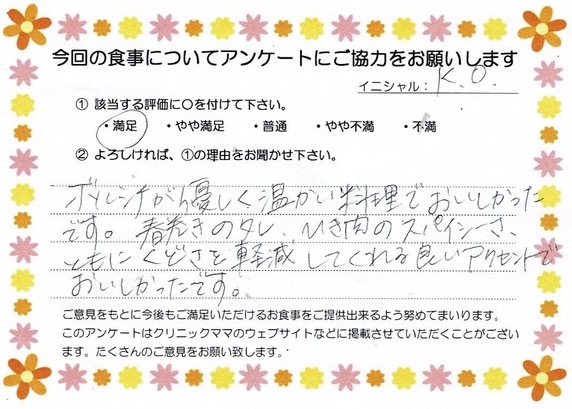 今回の食事についてアンケートにご協力をお願いします
イニシャル： K.O.
① 該当する評価に〇を付けて下さい。
・満足 ・やや満足 ・普通 ・やや不満 ・不満
② よろしければ、①の理由をお聞かせ下さい。
ボルシチが優しく温かい料理でおいしかった
です。春巻きのタレ、ひき肉のスパイシーさ、
ともにくどさを軽減してくれる良いアクセントで
おいしかったです。
ご意見をもとに今後もご満足いただけるお食事をご提供出来るよう努めてまいります。
このアンケートはクリニックママのウェブサイトなどに掲載させていただくことがござい
ます。たくさんのご意見をお願い致します。